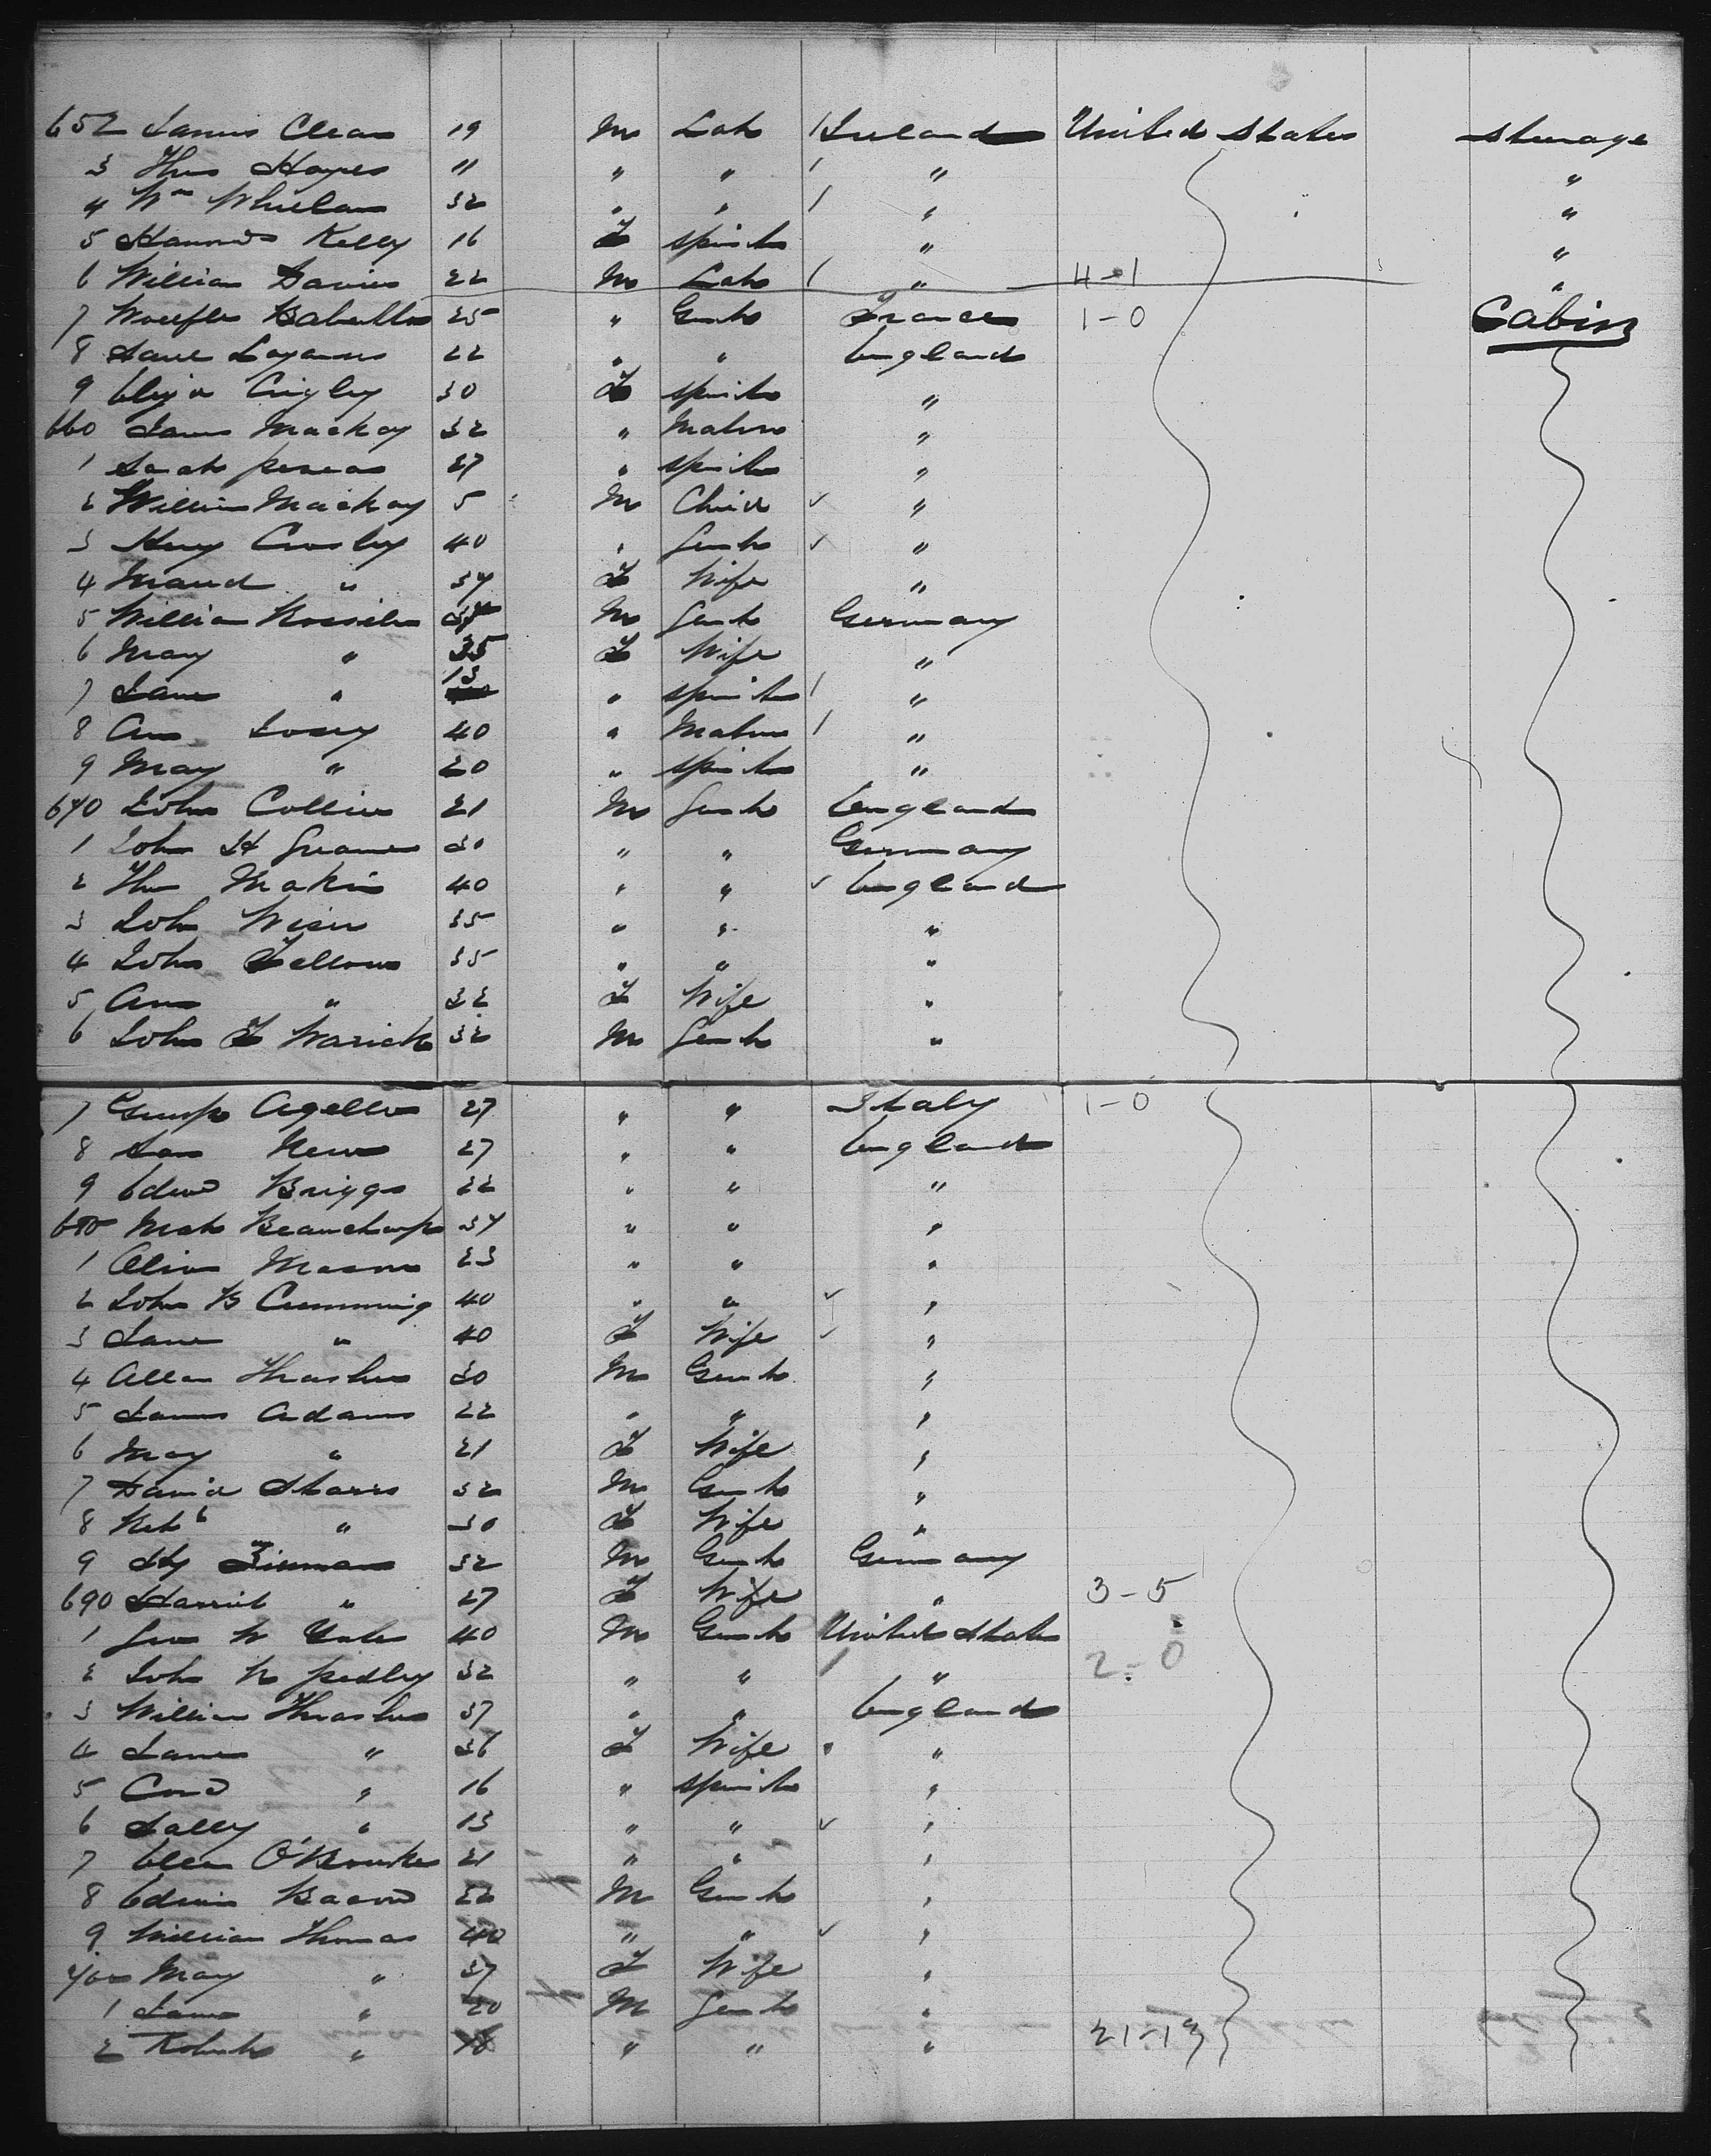 652 James Clean 19 M Lab / Ireland United States Steerage
3 Thos Hayes " " " / " "
4 Wm Whelan 32 " " / " "
5 Hannah Kelly 16 F Spinstr " "
6 William Davies 22 M Lab / " 4-1 "
7 25 " Gentn France 1-0 Cabin
8 22 " " England
9 Eliza 30 F Spinstr "
660 Mackay 32 " Matron "
1 Sarah 27 " Spinstr "
2 William Mackay 5 M Child ✓ "
3 Hny Crosby 40 " Gentn ✓ "
4 Maud " 34 F Wife "
5 William M Gentn Germany
6 Mary " 35 F Wife "
7 Jane " 13 " Spinstr / "
8 Ann 40 " Matron / "
9 Mary " 20 " Spinstr "
670 John Collier 21 M Gentn England
1 John H 30 " " Germany
2 Thos Makin 40 " " ✓ England
3 John 35 " " "
4 John Fellows 35 " " "
5 Ann " 32 F Wife "
6 John F Warick 32 M Gentn "
7 Agello 27 " " Italy 1-0
8 27 " " England
9 Edwd Briggs 22 " " "
680 Beauchamp 34 " " "
1 Mason 23 " " "
2 John B Cumming 40 " " ✓ "
3 Jane " 40 F Wife ✓ "
4 Allan Thrasher 30 M Gentn "
5 James Adams 22 " " "
6 Mary " 21 F Wife "
7 David 32 M Gentn "
8 " 30 F Wife "
9 Hy 32 M Gentn Germany
690 Harriet " 27 F Wife " 3-5
1 Geo W Yates 40 M Gentn United States
2 John W Pedley 32 " " / " 2-0
3 William Thrasher 37 " " England
4 Jane " 36 F Wife "
5 " 16 " Spinstr "
6 Sally " 13 " " ✓ "
7 Ellen O'Rourke 21 " " "
8 Edwin Bacon 22 M Gentn "
9 William Thomas 40 " " ✓ "
700 Mary " 37 F Wife "
1 James " 20 M Gentn "
2 Robert " 18 " " " 21-19